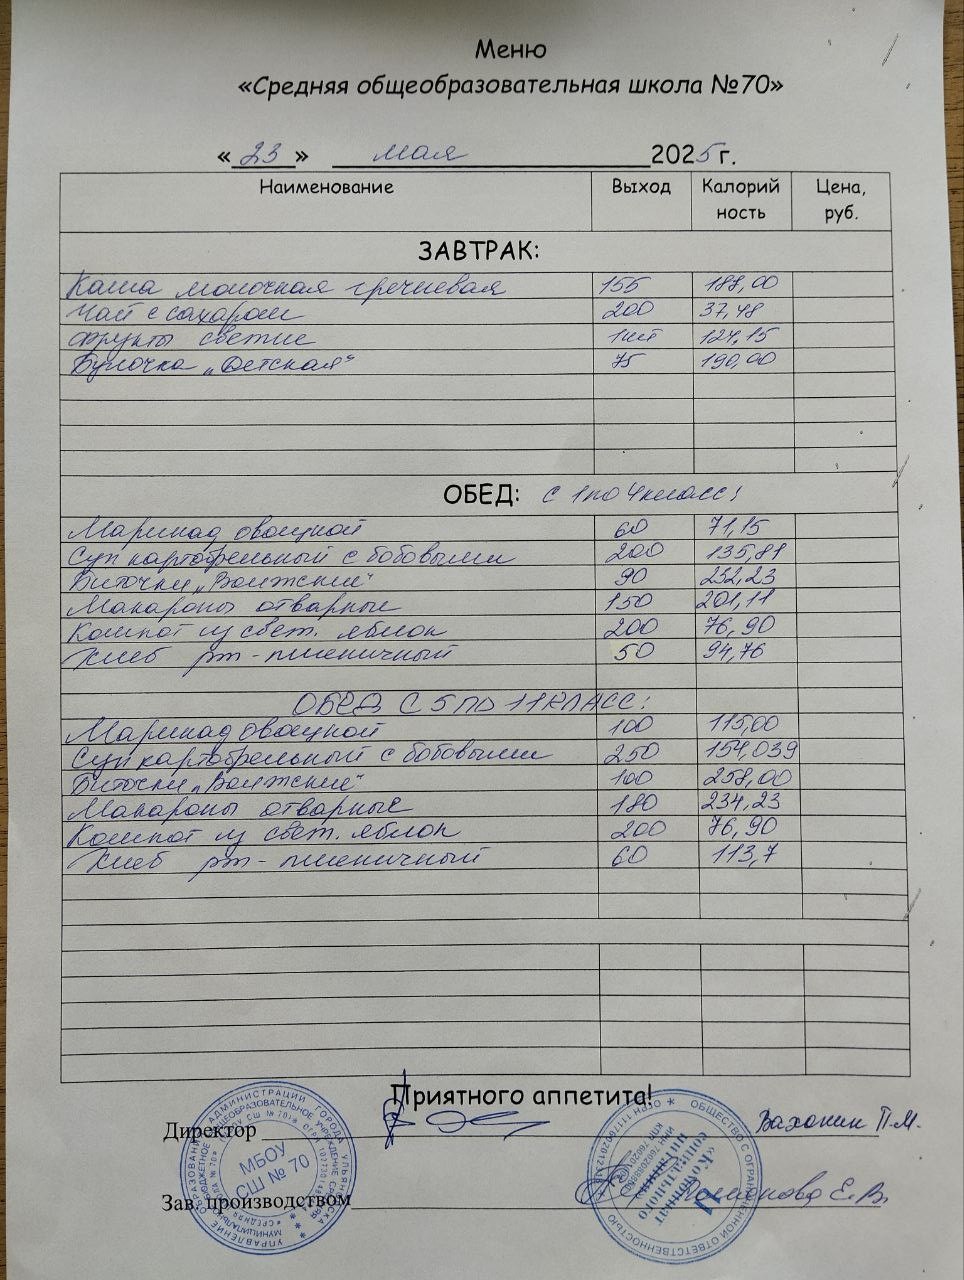 Меню
«Средняя общеобразовательная школа №70»
«23» мая 2025 г.
Наименование Выход Калорий ность Цена, руб.
ЗАВТРАК:
Каша молочная гречневая 155 188,00
Чай с сахаром 200 37,48
Фрукты свежие 1шт 124,15
Булочка „Детская" 75 190,00
ОБЕД: с 1 по 4 класс:
Маринад овощной 60 71,15
Суп картофельный с бобовыми 200 135,81
Биточки „Волжские" 90 232,23
Макароны отварные 150 201,11
Компот из свеж. яблок 200 76,90
Хлеб рж-пшеничный 50 94,76
ОБЕД С 5 ПО 11 КЛАСС:
Маринад овощной 100 115,00
Суп картофельный с бобовыми 250 154,039
Биточки „Волжские" 100 258,00
Макароны отварные 180 234,23
Компот из свеж. яблок 200 76,90
Хлеб рж-пшеничный 60 113,7
Приятного аппетита!
Директор Вахонин П.М.
МБОУ
СШ № 70
Зав. производством Е.В.
ОБЩЕСТВО С ОГРАНИЧЕННОЙ ОТВЕТСТВЕННОСТЬЮ
социального
питания